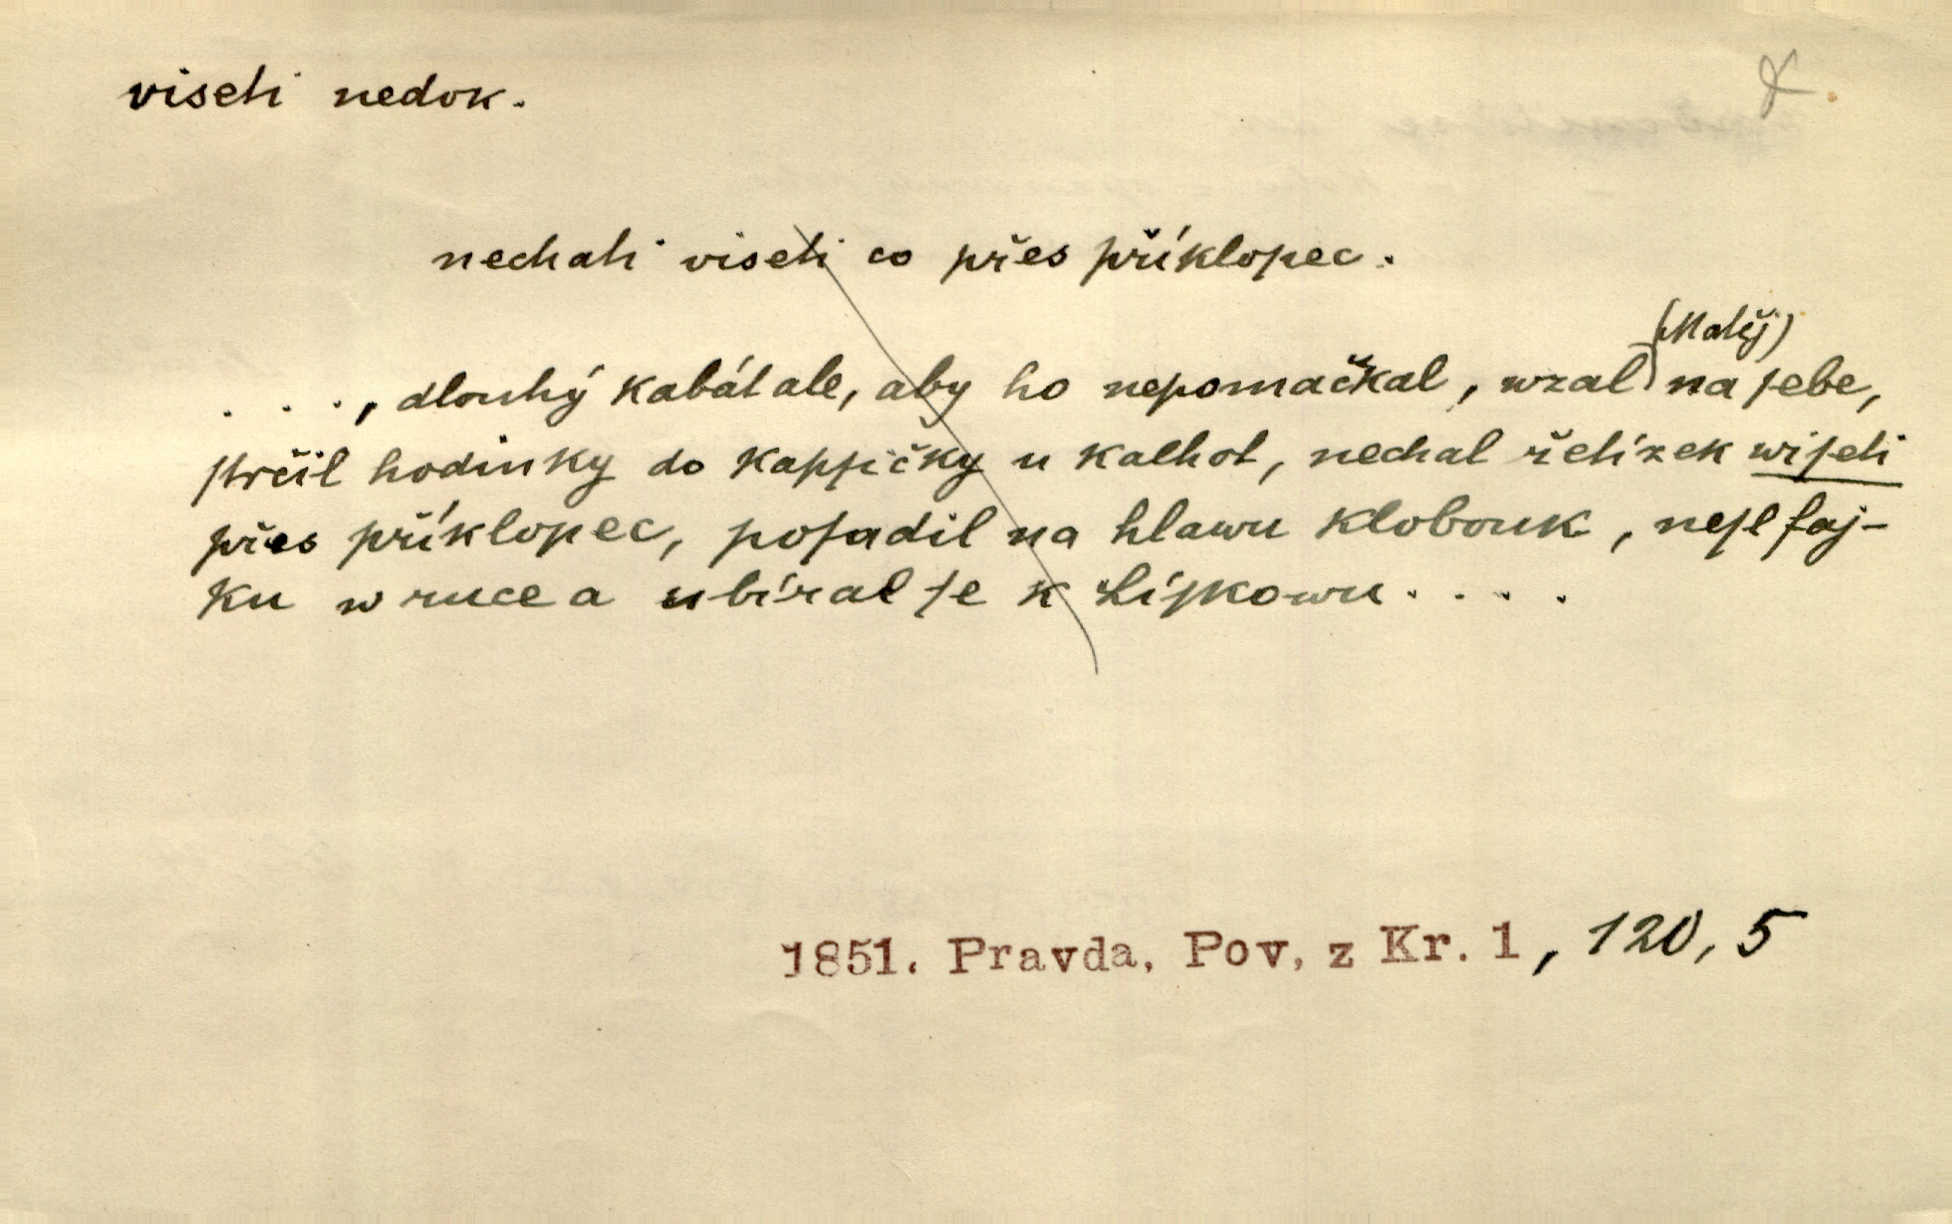 viseti nedok.
nechati viseti co přes příklopec.
(Matěj)
. . . , dlouhý kabát ale, aby ho nepomačkal, wzal na ſebe,
ſtrčil hodinky do kapſičky u kalhot, nechal řetízek wiſeti
přes příklopec, poſadil na hlawu klobouk, neſl faj-
ku w ruce a ubíral ſe k Líſkowu . . . .
1851. Pravda, Pov. z Kr. 1, 120, 5